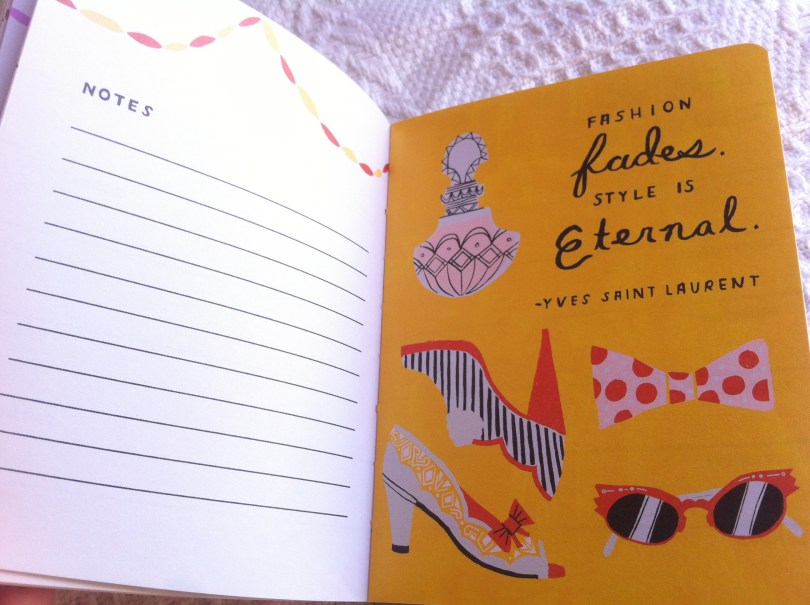 NOTES
FASHION
fades.
STYLE IS
Eternal.
-YVES SAINT LAURENT